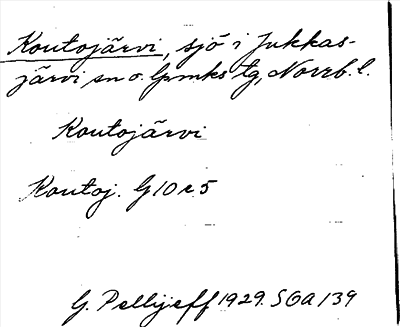 Koutojärvi, sjö i Jukkas-
järvi sn o. Lpmks tg, Norrb. l.
Koutojärvi
Koutoj. G10c5
G. Pellijeff 1929. SGA 139